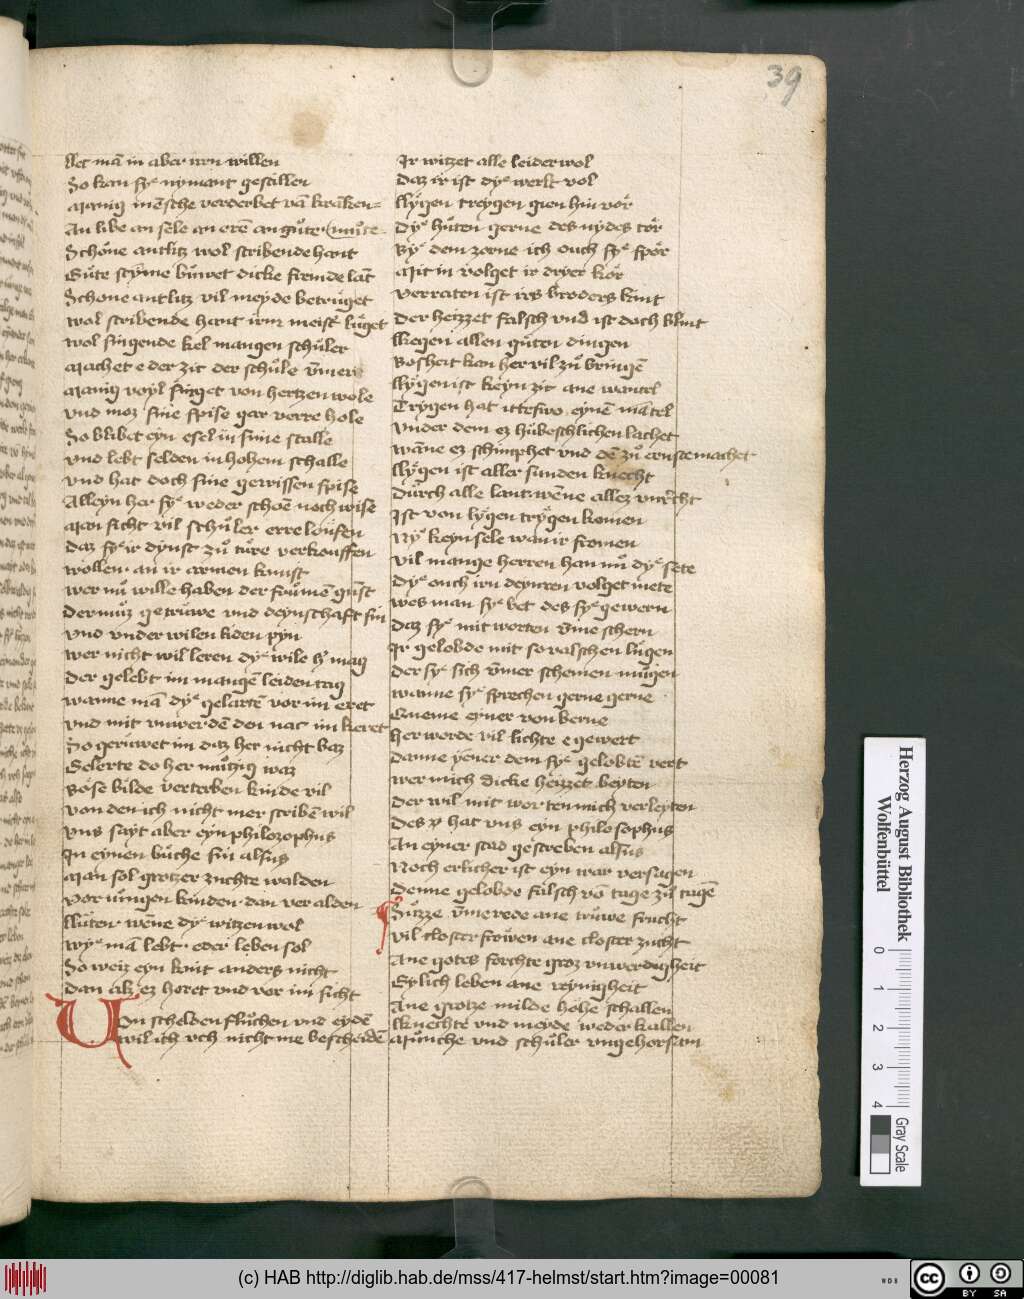 39
Let mā in aber irn willen
So kan syͤ nymant gestillen
Manig mēsche verderbet vā krāken
An libe an sele an erē an gůte můte
Schoͤne antlitz wol scribende hant
Gůte styme bůwet dicke fremde lāt
Schone antlitz vil meyde betruͤget
Wol scribende hant irm meistē luͤget
Wol singende kel mangen schůler
Machet e der zit der schůle v̄mer
Manig voyl singet von hertzen wole
Vnd moz sine spise gar verre hole
So blibet eyn esel in sime stalle
Vnd lebt selden in hohem schalle
Vnd hat doch sine gewissen spise
Alleyn her syͤ weder schoē noch wise
Man sicht vil schůler erre loufen
Daz syͤ ir dynst zů tůre verkouffen
Wollen an ir armen kunst
Wer nů wille haben der froumē gūst
Der můz getruwe vnd deynschaft sin
Vnd vnder wilen liden pyn
Wer nicht wil leren dyͤ wile h̓ mag
Der gelebt im mangē leiden tag
Wanne mā dyͤ gelartē vor im eret
Vnd mit vnwerdē den nac im keret
So geruwet im daz her nicht baz
Gelerte do her můtzig waz
Boͤse bilde verterben kinde vil
Von den ich nicht mer scribē wil
Vns sayt aber eyn philozophus
In eynen bůche sin alsus
Man sol grozer zuchte walden
Vor iungen kinden dan vor alden
Lůten wēne dyͤ witzen wol
Wyͤ mā lebt oder leben sol
So weiz eyn kint anders nicht
Dan alz ez horet vnd vor im sicht
Von schelden flůchen vnd eydē
Wil ich vch nicht me bescheidē
Ir witzet alle leider wol
Daz ir ist dyͤ werlt vol
Lygen treygen gien hin vor
Dyͤ hůten gerne des nydes tor
Byͤ dem zorne ich ouch syͤ spor
Mit in volget ir dryer kor
Verraten ist irs bruders kint
Der heizzet falsch vnd ist doch blint
Kegen allen gůten dingen
Bosheit kan her vil zů bringē
Lygen ist keyn zit ane wantel
Trygen hat itteswo eynē mātel
Vnder dem ez hubeschlichen lachet
Wāne ez schimphet vnd dē zů ernste machet
Lygen ist aller sunden knecht
Durch alle lant wēne allez vnrecht
Ist von lygen trygen komen
Nyͤ keyn sele wan ir fromen
Vil mange herren han nů dyͤ sete
Dyͤ ouch irn deynren volget mete
Wes man syͤ bet des syͤ gewern
Daz syͤ mit worten v̄me schern
Ir gelobde mit so valschen lugen
Der syͤ sich v̄mer schemen mugen
Wanne syͤ sprechen gerne gerne
Queme eyner von berne
Her worde vil lichte e gewert
Danne yener dem syͤ gelobtē vert
Wer mich dicke heizzet beyten
Der wil mit worten mich verleyten
Des hat vns eyn philosophus
An eyner stad gescreben alsus
Noch erlicher ist eyn war versagen
Denne gelobde falsch vō tage zů tagē
Sůzze v̄me rede ane truwe frucht
Vil closter frowen ane closter zucht
Ane gotes forchte groz vnwerdigheit
Gylich leben ane reynigheit
Ane grotze milde hohe schallen
Knechte vnd meyde weder kallen
Munche vnd schůler vngehorsam
Herzog August Bibliothek
Wolfenbüttel
0 1 2 3 4
Gray Scale
(c) HAB http://diglib.hab.de/mss/417-helmst/start.htm?image=00081
WDB
cc BY SA